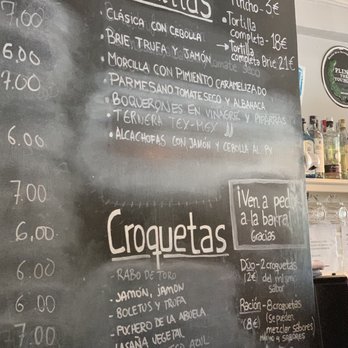 7,00
6.00
7.00
6.00
7.00
6,00
6.00
6.00
7.00
CLÁSICA CON CEBOLLA
BRIE, TRUFA Y JAMÓN
MORCILLA CON PIMIENTO CARAMELIZADO
PARMESANO TOMATE SECO Y ALBAHACA
BOQUERONES EN VINAGRE Y PIPARRAS
TERNERA TEX-MEX
ALCACHOFAS CON JAMÓN Y CEBOLLA AL PX
- 5€
· Tortilla
completa - 18€
Tortilla
completa Brie 21€
Croquetas
- RABO DE TORO
- JAMÓN, JAMON
- BOLETUS Y TRUFA
- PUCHERO DE LA ABUELA
LASAÑA VEGETAL
¡Ven a pedir
a la barra!
Gracias
Dúo - 2 croquetas
12€ del mismo
sabor
Ración - 8 croquetas
18€ (se pueden
mezclar sabores)